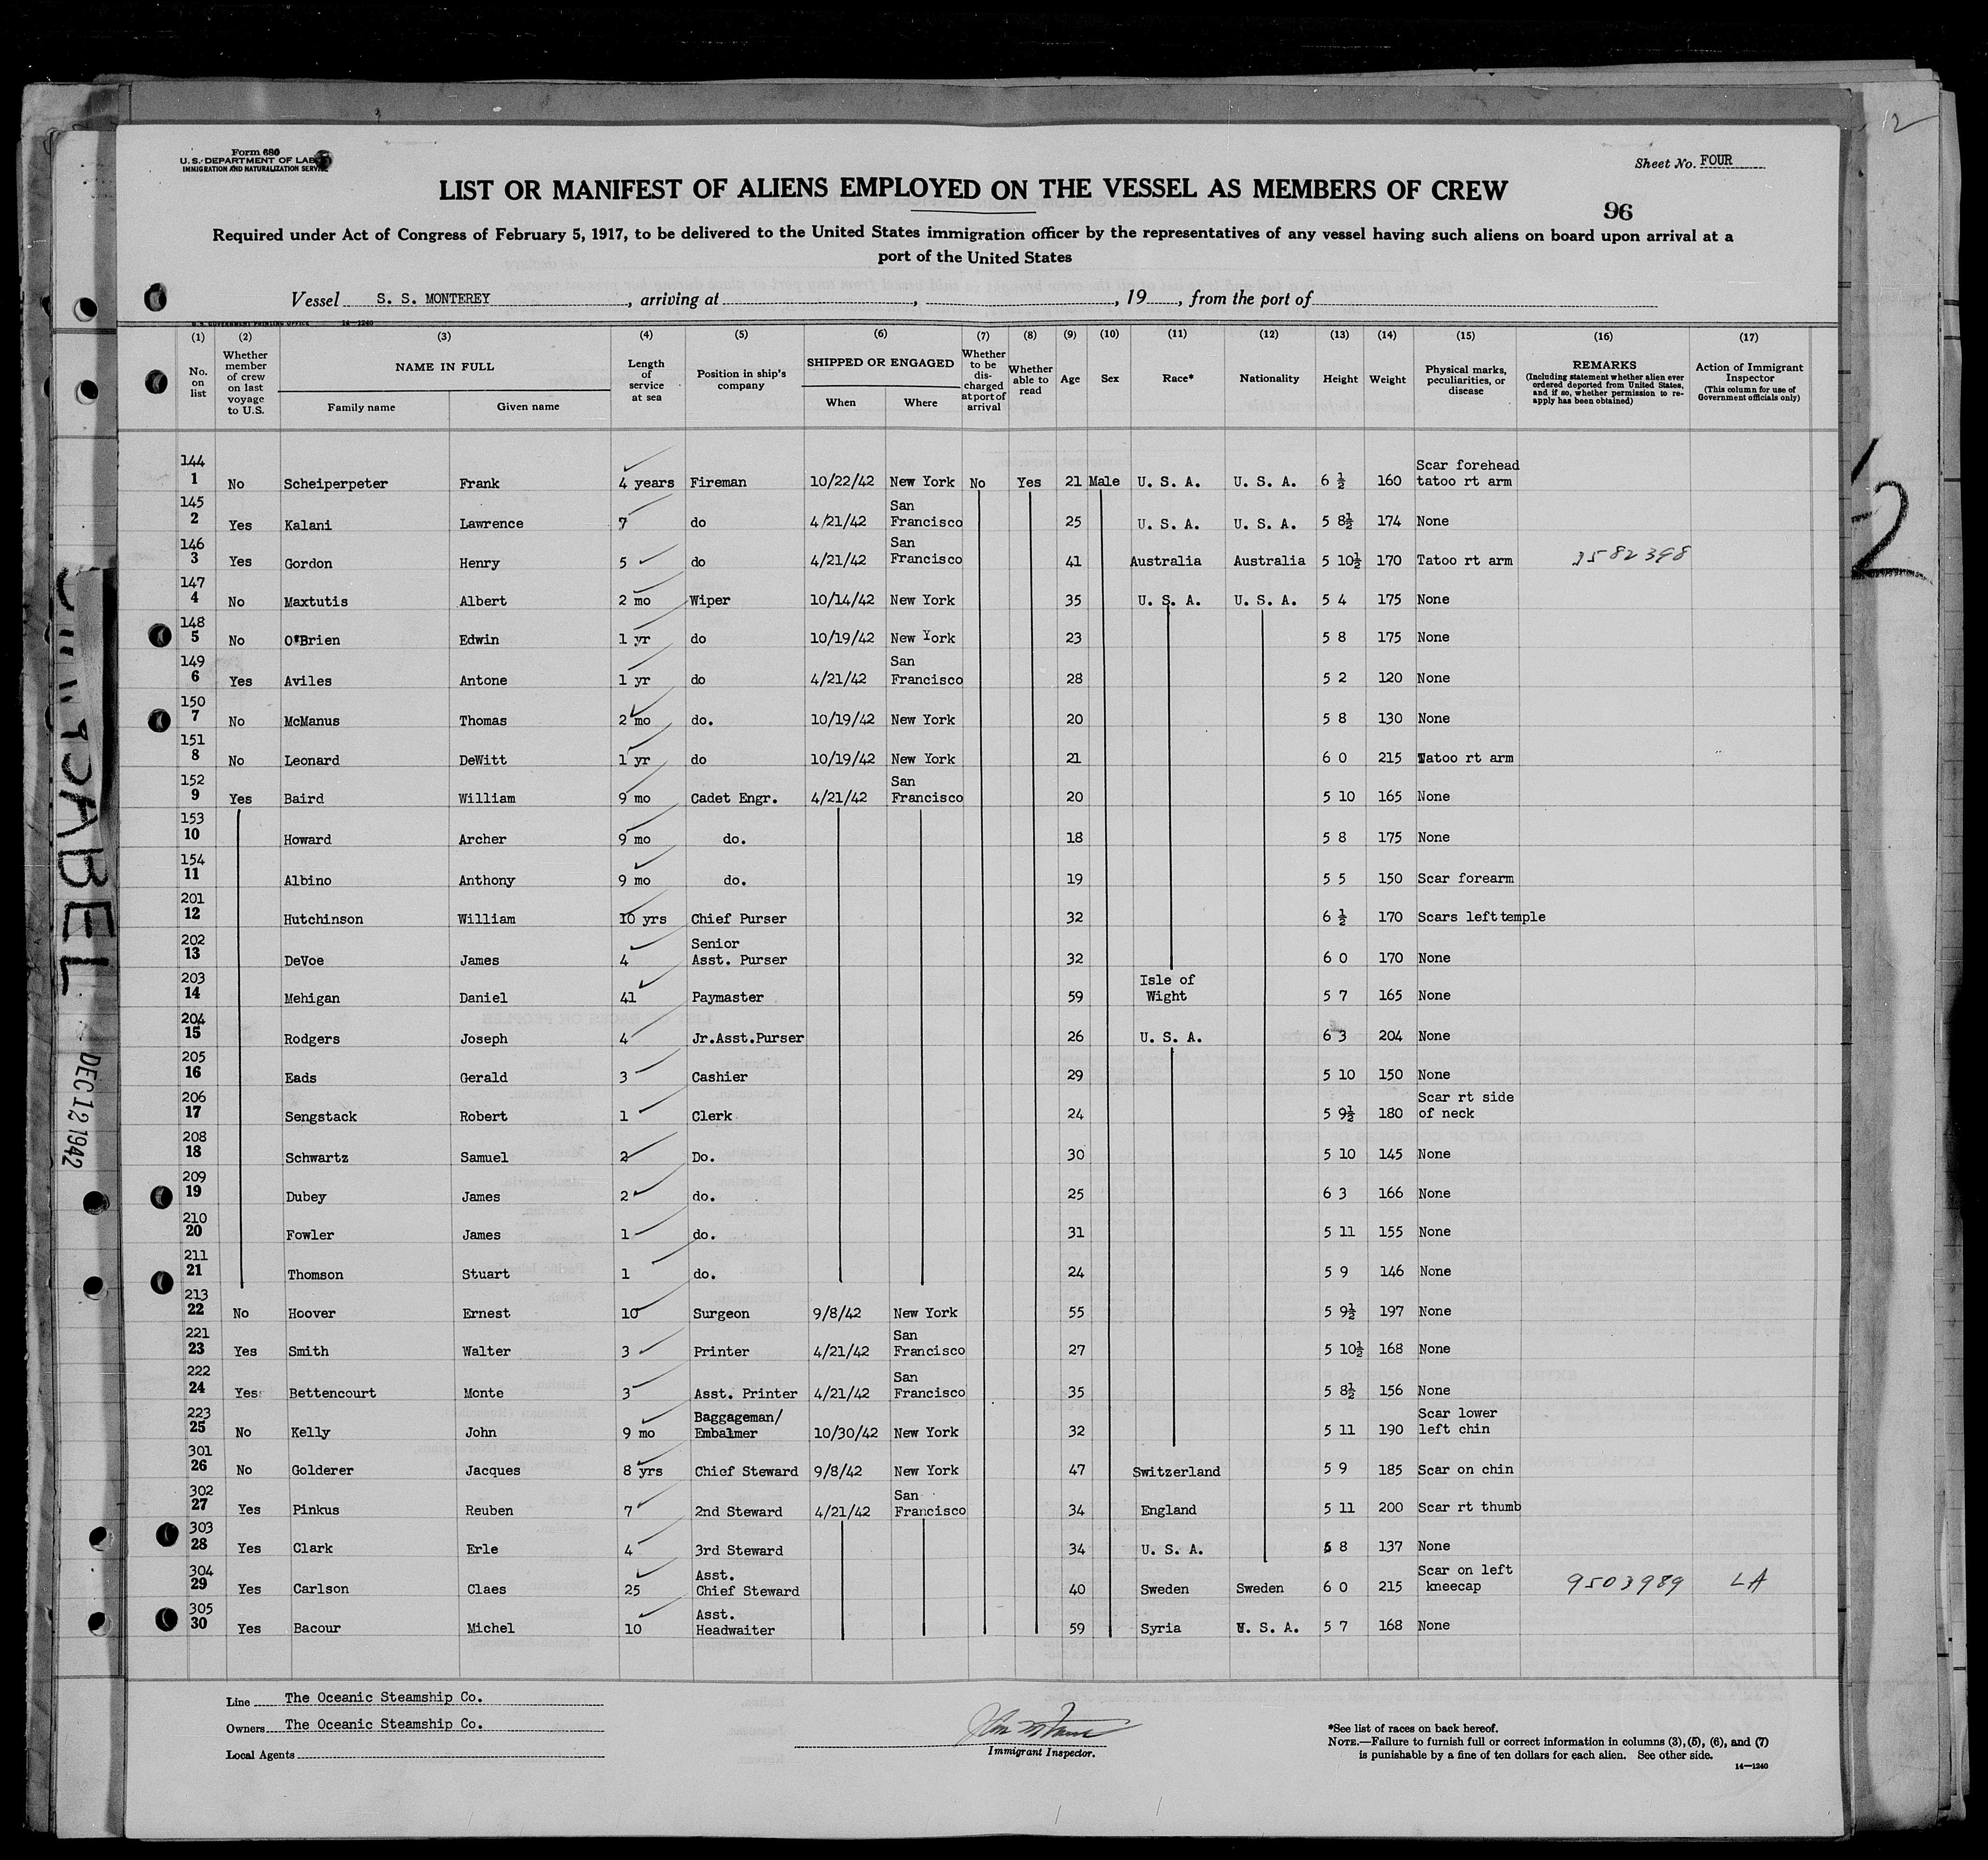 12
Form 680
U. S. DEPARTMENT OF LABOR
IMMIGRATION AND NATURALIZATION SERVICE
Sheet No. FOUR
LIST OR MANIFEST OF ALIENS EMPLOYED ON THE VESSEL AS MEMBERS OF CREW
96
Required under Act of Congress of February 5, 1917, to be delivered to the United States immigration officer by the representatives of any vessel having such aliens on board upon arrival at a
port of the United States
Vessel S. S. MONTEREY, arriving at , , 19 , from the port of
U. S. GOVERNMENT PRINTING OFFICE 14—1240
(1) (2) (3) (4) (5) (6) (7) (8) (9) (10) (11) (12) (13) (14) (15) (16) (17)
No. on list
Whether member of crew on last voyage to U.S.
NAME IN FULL
Family name Given name
Length of service at sea
Position in ship's company
SHIPPED OR ENGAGED
When Where
Whether to be discharged at port of arrival
Whether able to read
Age Sex Race* Nationality Height Weight
Physical marks, peculiarities, or disease
REMARKS
(Including statement whether alien ever ordered deported from United States, and if so, whether permission to reapply has been obtained)
Action of Immigrant Inspector
(This column for use of Government officials only)
144
1 No Scheiperpeter Frank 4 years Fireman 10/22/42 New York No Yes 21 Male U. S. A. U. S. A. 6 ½ 160 Scar forehead tatoo rt arm
145
2 Yes Kalani Lawrence 7 do 4/21/42 San Francisco 25 U. S. A. U. S. A. 5 8½ 174 None
146
3 Yes Gordon Henry 5 do 4/21/42 San Francisco 41 Australia Australia 5 10½ 170 Tatoo rt arm 3582398
147
4 No Maxtutis Albert 2 mo Wiper 10/14/42 New York 35 U. S. A. U. S. A. 5 4 175 None
148
5 No O'Brien Edwin 1 yr do 10/19/42 New York 23 5 8 175 None
149
6 Yes Aviles Antone 1 yr do 4/21/42 San Francisco 28 5 2 120 None
150
7 No McManus Thomas 2 mo do. 10/19/42 New York 20 5 8 130 None
151
8 No Leonard DeWitt 1 yr do 10/19/42 New York 21 6 0 215 Tatoo rt arm
152
9 Yes Baird William 9 mo Cadet Engr. 4/21/42 San Francisco 20 5 10 165 None
153
10 Howard Archer 9 mo do. 18 5 8 175 None
154
11 Albino Anthony 9 mo do. 19 5 5 150 Scar forearm
201
12 Hutchinson William 10 yrs Chief Purser 32 6 ½ 170 Scars left temple
202
13 DeVoe James 4 Senior Asst. Purser 32 6 0 170 None
203
14 Mehigan Daniel 41 Paymaster 59 Isle of Wight 5 7 165 None
204
15 Rodgers Joseph 4 Jr.Asst.Purser 26 U. S. A. 6 3 204 None
205
16 Eads Gerald 3 Cashier 29 5 10 150 None
206
17 Sengstack Robert 1 Clerk 24 5 9½ 180 Scar rt side of neck
208
18 Schwartz Samuel 2 Do. 30 5 10 145 None
209
19 Dubey James 2 do. 25 6 3 166 None
210
20 Fowler James 1 do. 31 5 11 155 None
211
21 Thomson Stuart 1 do. 24 5 9 146 None
213
22 No Hoover Ernest 10 Surgeon 9/8/42 New York 55 5 9½ 197 None
221
23 Yes Smith Walter 3 Printer 4/21/42 San Francisco 27 5 10½ 168 None
222
24 Yes Bettencourt Monte 3 Asst. Printer 4/21/42 San Francisco 35 5 8½ 156 None
223
25 No Kelly John 9 mo Baggageman/ Embalmer 10/30/42 New York 32 5 11 190 Scar lower left chin
301
26 No Golderer Jacques 8 yrs Chief Steward 9/8/42 New York 47 Switzerland 5 9 185 Scar on chin
302
27 Yes Pinkus Reuben 7 2nd Steward 4/21/42 San Francisco 34 England 5 11 200 Scar rt thumb
303
28 Yes Clark Erle 4 3rd Steward 34 U. S. A. 5 8 137 None
304
29 Yes Carlson Claes 25 Asst. Chief Steward 40 Sweden Sweden 6 0 215 Scar on left kneecap 9503989 LA
305
30 Yes Bacour Michel 10 Asst. Headwaiter 59 Syria U. S. A. 5 7 168 None
Line The Oceanic Steamship Co.
Owners The Oceanic Steamship Co.
Local Agents
Immigrant Inspector.
*See list of races on back hereof.
NOTE.—Failure to furnish full or correct information in columns (3), (5), (6), and (7)
is punishable by a fine of ten dollars for each alien. See other side.
14—1240
DEC 12 1942
2